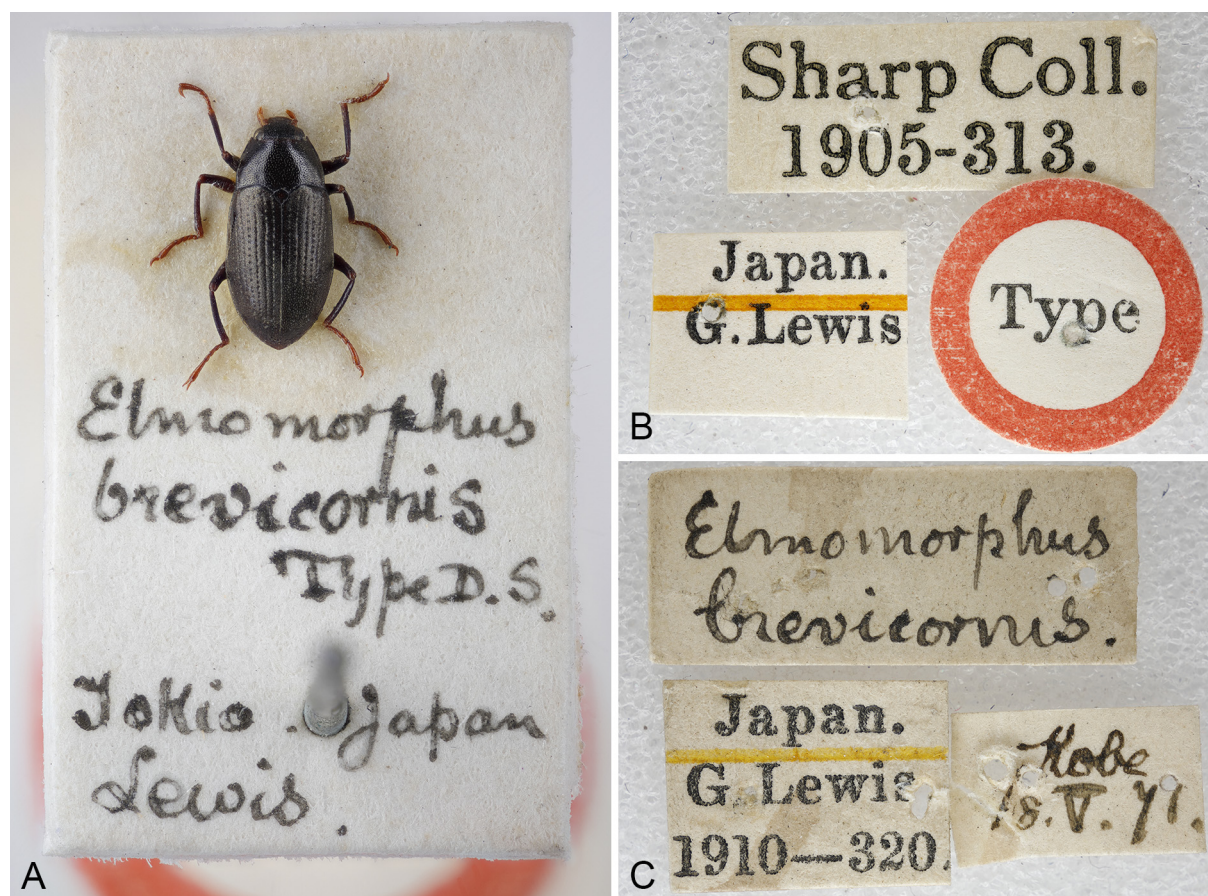 Elmomorphus
brevicornis
Type D. S.
Tokio. Japan
Lewis.
A
Sharp Coll.
1905-313.
Japan.
G. Lewis
Type
B
Elmomorphus
brevicornis.
Japan.
G. Lewis
1910—320.
Kobe
18. V. 71.
C